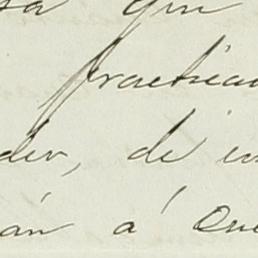 sa que
practica
der, de in
án á Que